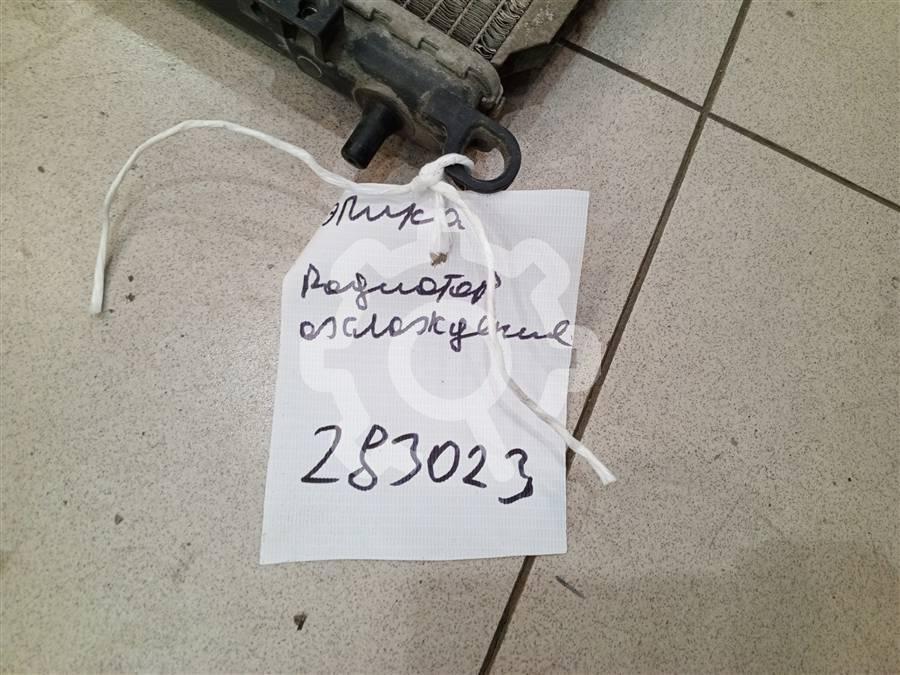 Эпика
Радиатор
охлаждения
283023